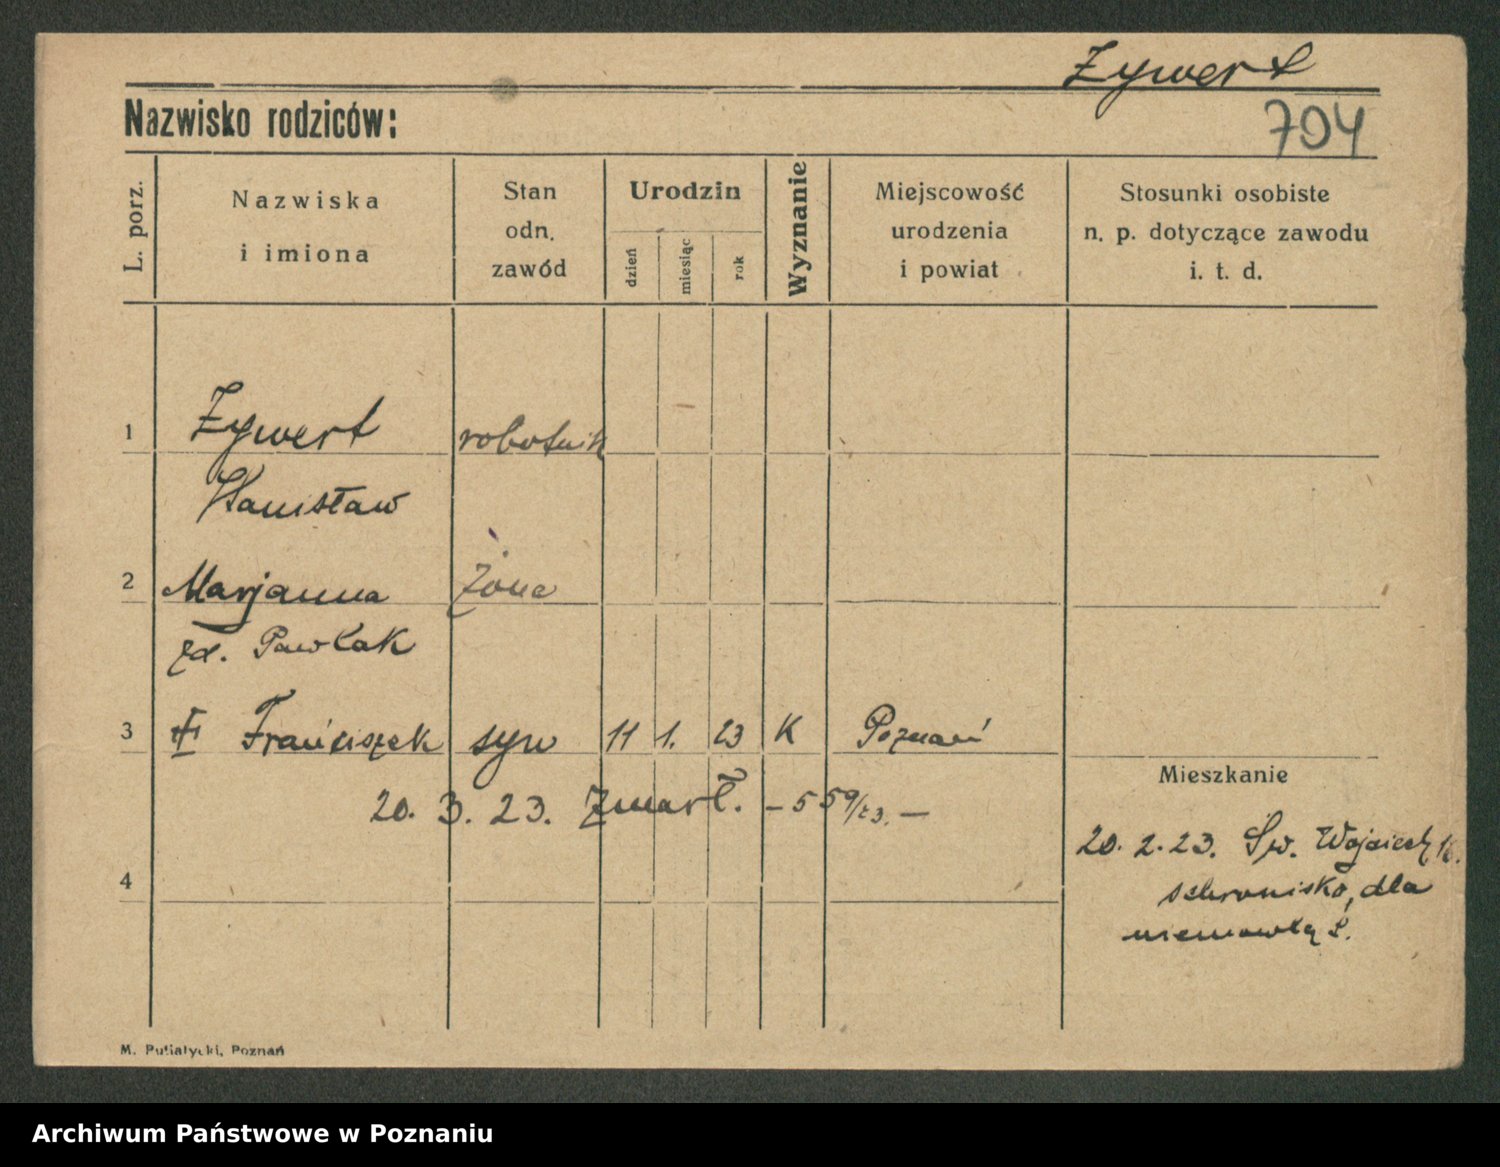 Zywert
Nazwisko rodziców:
704
L. porz.
Nazwiska
i imiona
Stan
odn.
zawód
Urodzin
dzień
miesiąc
rok
Wyznanie
Miejscowość
urodzenia
i powiat
Stosunki osobiste
n. p. dotyczące zawodu
i. t. d.
1 Zywert robotnik
Stanisław
2 Marjanna żona
zd. Pawlak
3 Franciszek syn 11 1. 23 K Poznań
20. 3. 23. Zmarł. – 559/23. –
Mieszkanie
20. 2. 23. Św. Wojciech
schronisko, dla
niemowląt.
4
M. Putiatycki, Poznań
Archiwum Państwowe w Poznaniu